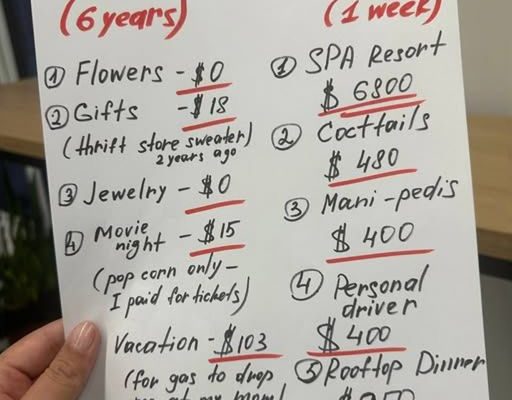 (6 years)
① Flowers - $0
② Gifts - $18
(thrift store sweater)
2 years ago
③ Jewelry - $0
④ Movie
night - $15
(pop corn only -
I paid for tickets)
Vacation - $103
(for gas to drop
at my mom!
(1 week)
① SPA Resort
$ 6800
② Cocttails
$ 480
③ Mani-pedis
$ 400
④ Personal
driver
$ 400
⑤ Rooftop Dinner